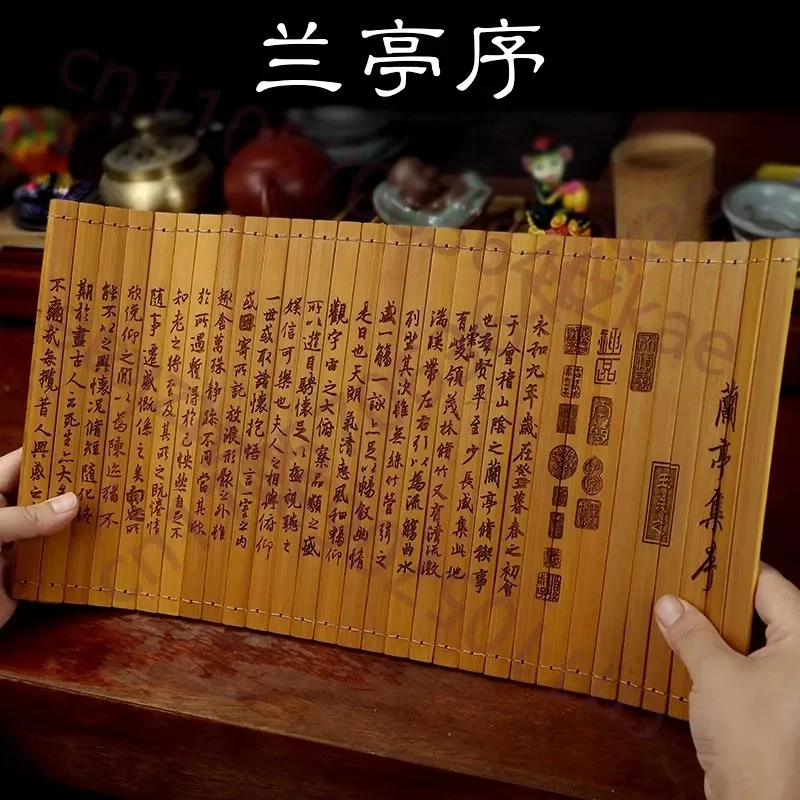 兰亭序
蘭亭集序
王羲之
永和九年歲在癸丑暮春之初會
于會稽山陰之蘭亭脩禊事
也羣賢畢至少長咸集此地
有崇山峻領茂林脩竹又有清流激
湍暎帶左右引以為流觴曲水
列坐其次雖無絲竹管弦之
盛一觴一詠亦足以暢敘幽情
是日也天朗氣清惠風和暢仰
觀宇宙之大俯察品類之盛
所以遊目騁懷足以極視聽之
娛信可樂也夫人之相與俯仰
一世或取諸懷抱悟言一室之內
或因寄所託放浪形骸之外雖
趣舍萬殊靜躁不同當其欣
於所遇暫得於己怏然自足不
知老之將至及其所之既惓情
隨事遷感慨係之矣向之所
欣俛仰之閒以為陳迹猶不
能不以之興懷況脩短隨化終
期於盡古人云死生亦大矣
不痛哉每攬昔人興感之